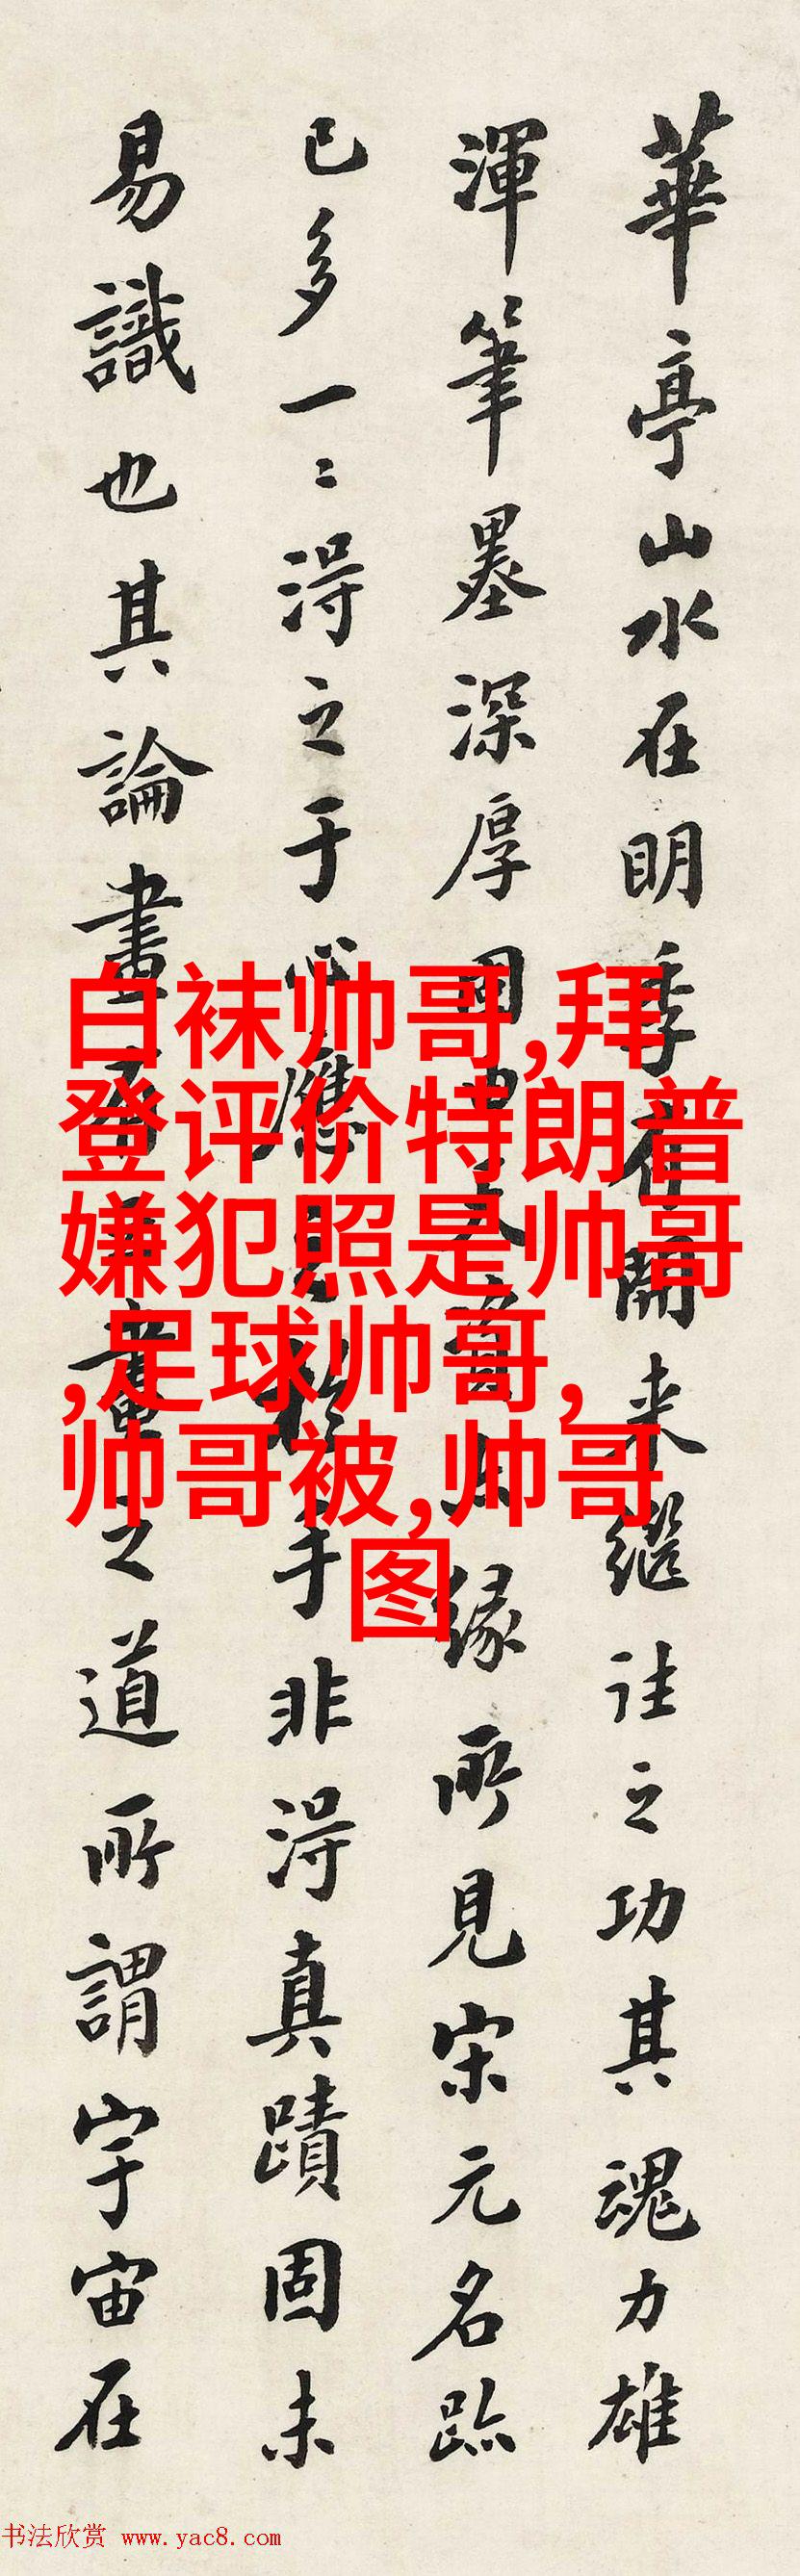 華亭山水在明季有開来繼往之功其魂力雄
渾筆墨深厚固由天資為緣所見宋元名跡
已多一二得之于心應之于手非得真蹟固未
易識也其論畫之道所謂宇宙在
白袜帅哥,拜
登评价特朗普
嫌犯照是帅哥
,足球帅哥,
帅哥被,帅哥
图
书法欣赏 www.yac8.com